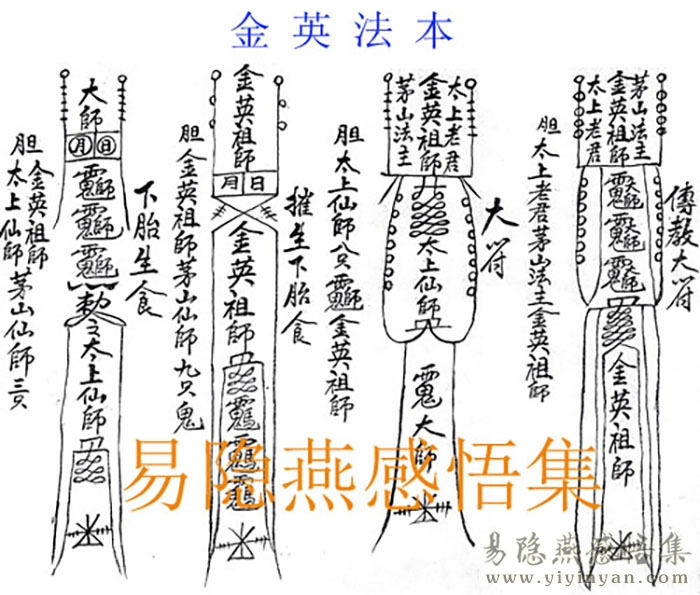 金英法本
大師
月日
勅令太上仙師
下胎生食
胆 金英祖師
太上仙師 茅山仙師三只
金英祖師
月日
金英祖師
摧生下胎食
胆金英祖師茅山仙師九只鬼
太上老君
金英祖師
茅山法主
太上仙師
大師
大符
胆太上仙師八只
金英祖師
茅山法主
金英祖師
太上老君
金英祖師
傳教大符
胆太上老君茅山法主金英祖師
易隐燕感悟集
易隐燕感悟集
www.yiyinyan.com